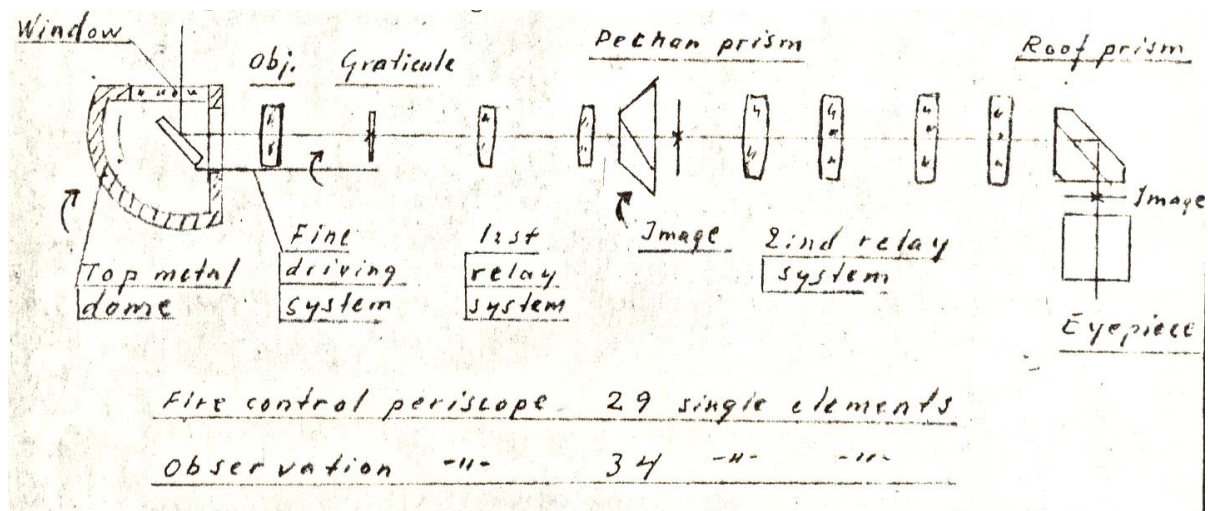 Window
Obj.
Graticule
Pechan prism
Roof prism
Image
Top metal
dome
Fine
driving
system
1zst
relay
system
Image
2ind relay
system
Eyepiece
Fire control periscope 29 single elements
Observation -"- 34 -"- -"-